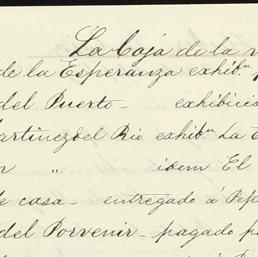 La Caja de la
de la Esperanza exhibn.
del Puerto - exhibició
Martinez del Rio exhibn. La E
" idem El
de casa - entregado á Pep
del Porvenir - pagado p